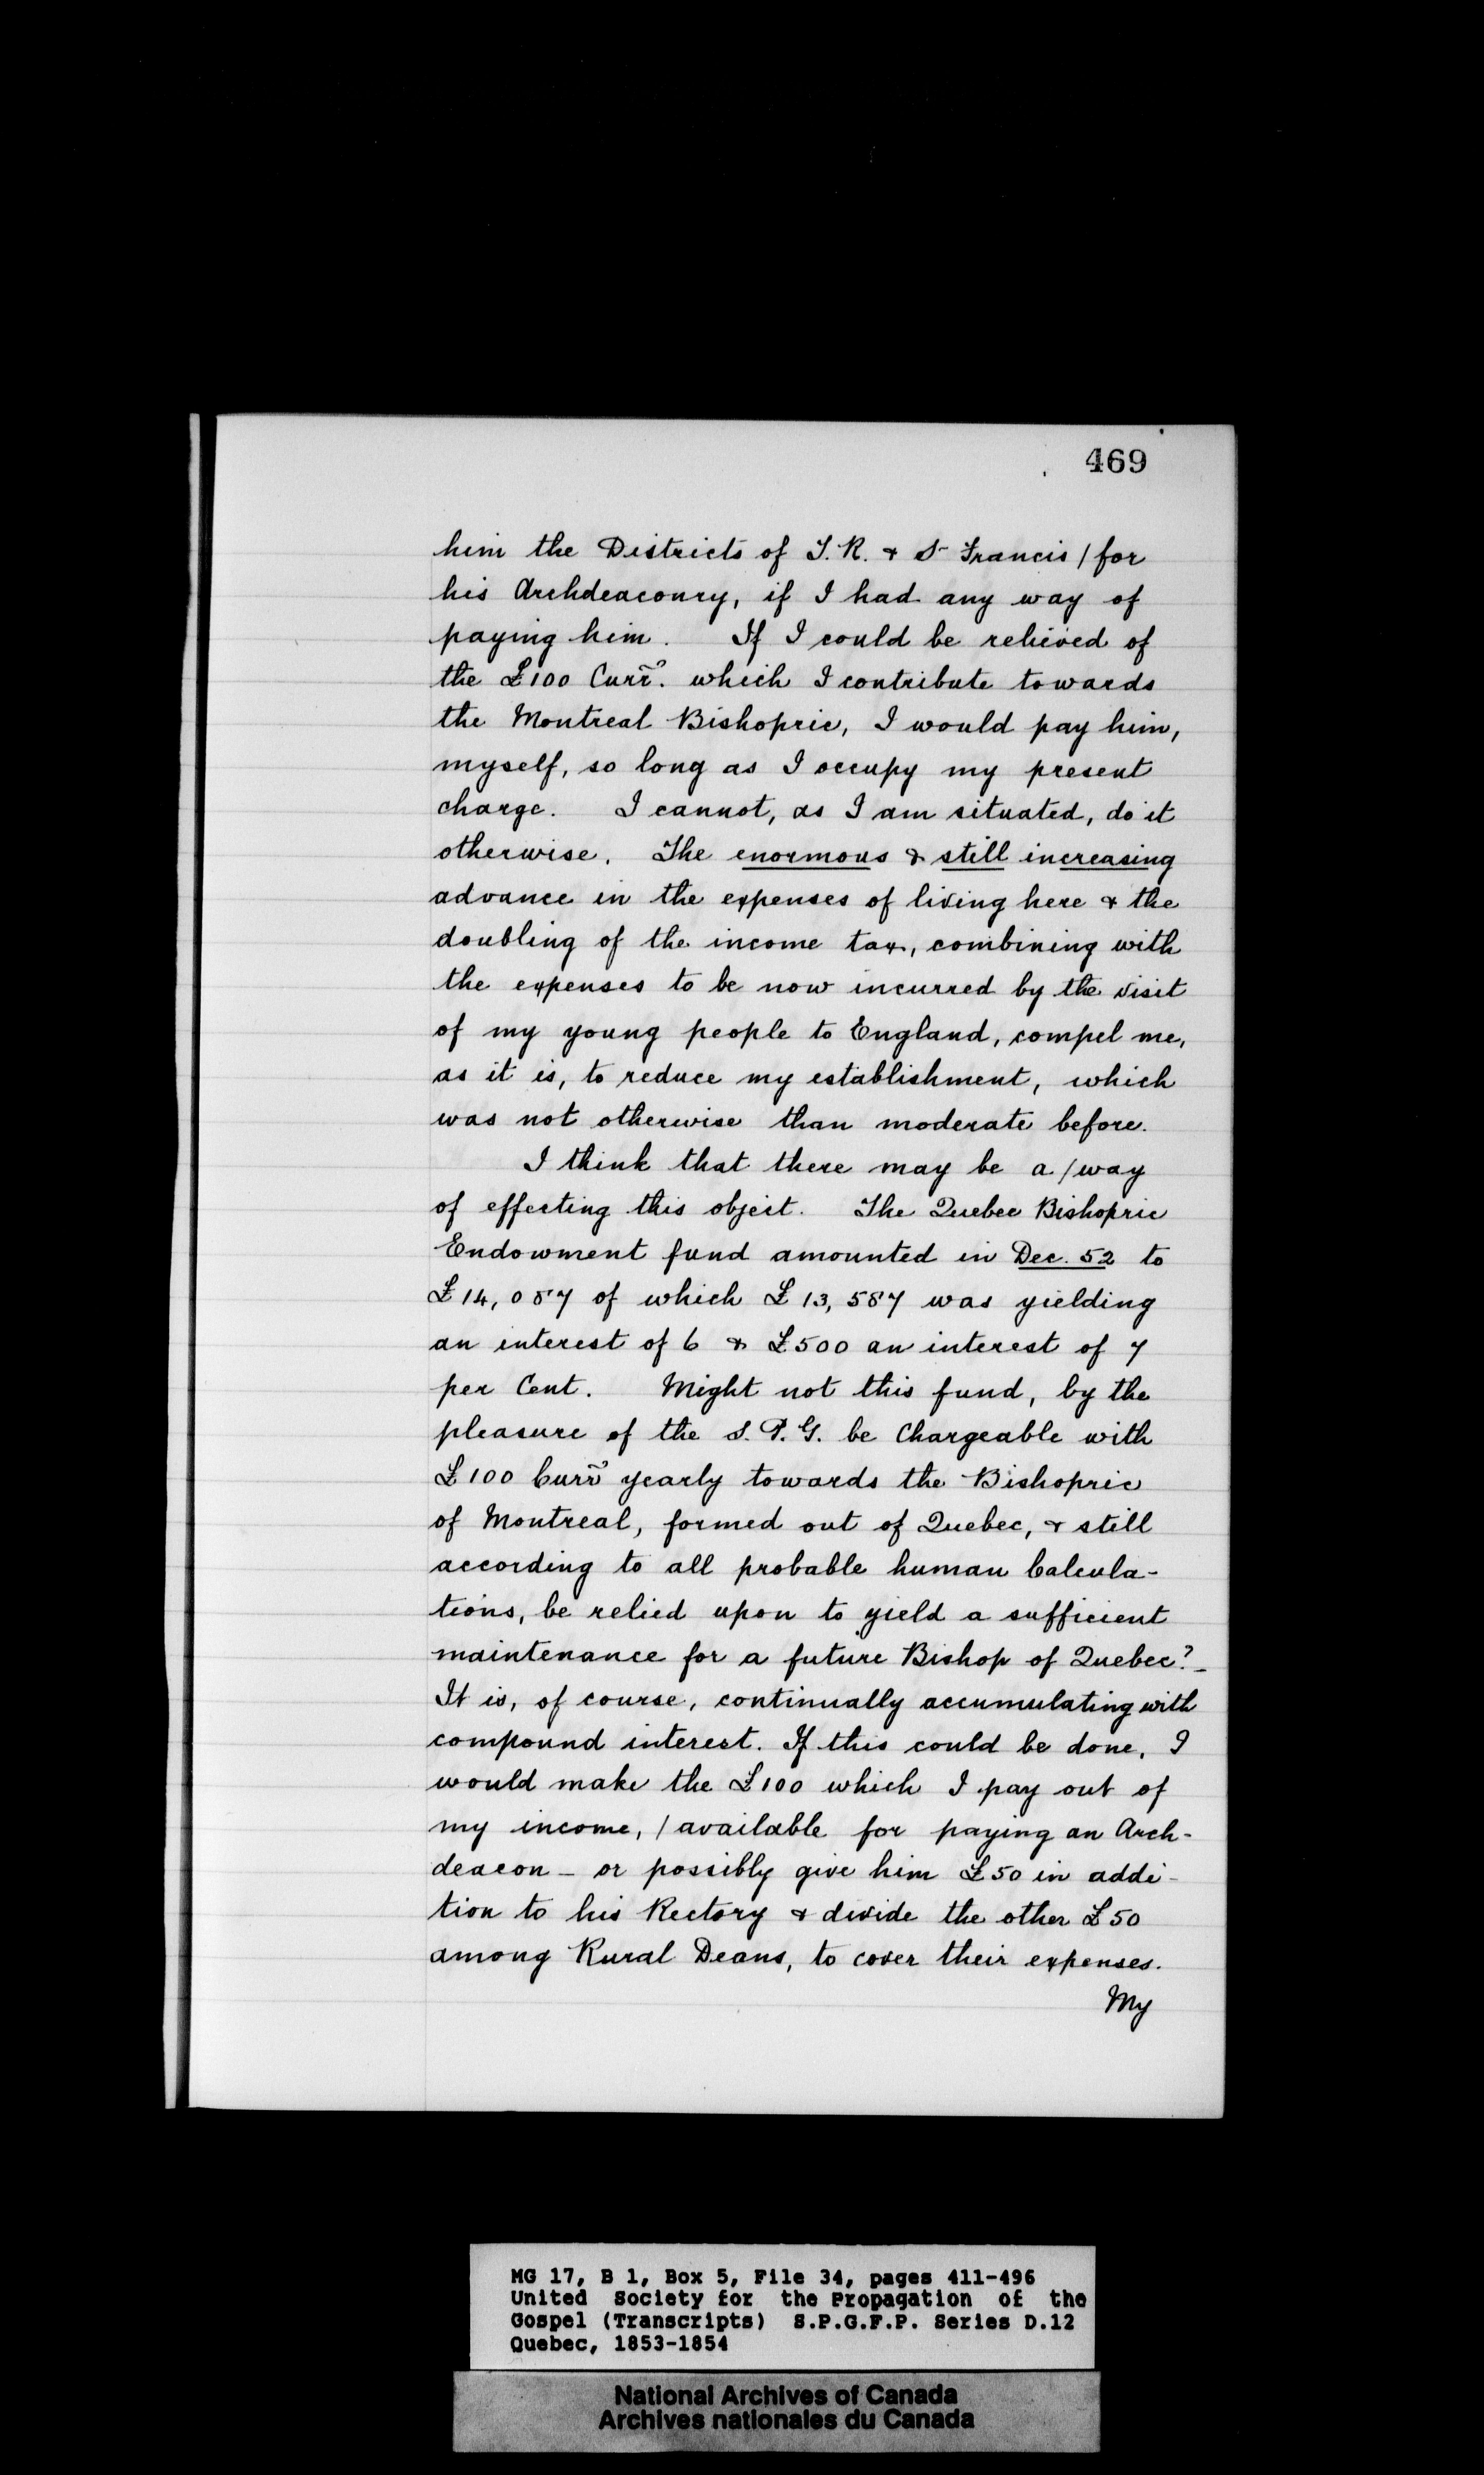 469
him the Districts of T. R. & St Francis / for
his Archdeaconry, if I had any way of
paying him. If I could be relieved of
the £100 Curr^y. which I contribute towards
the Montreal Bishopric, I would pay him,
myself, so long as I occupy my present
charge. I cannot, as I am situated, do it
otherwise. The enormous & still increasing
advance in the expenses of living here & the
doubling of the income tax, combining with
the expenses to be now incurred by the visit
of my young people to England, compel me,
as it is, to reduce my establishment, which
was not otherwise than moderate before.
I think that there may be a / way
of effecting this object. The Quebec Bishopric
Endowment fund amounted in Dec. 52 to
£14,087 of which £13,587 was yielding
an interest of 6 & £500 an interest of 7
per Cent. Might not this fund, by the
pleasure of the S. P. G. be Chargeable with
£100 Curr^y yearly towards the Bishopric
of Montreal, formed out of Quebec, & still
according to all probable human Calcula-
tions, be relied upon to yield a sufficient
maintenance for a future Bishop of Quebec? -
It is, of course, continually accumulating with
compound interest. If this could be done, I
would make the £100 which I pay out of
my income, / available for paying an Arch-
deacon - or possibly give him £50 in addi-
tion to his Rectory & divide the other £50
among Rural Deans, to cover their expenses.
My
MG 17, B 1, Box 5, File 34, pages 411-496
United Society for the Propagation of the
Gospel (Transcripts) S.P.G.F.P. Series D.12
Quebec, 1853-1854
National Archives of Canada
Archives nationales du Canada